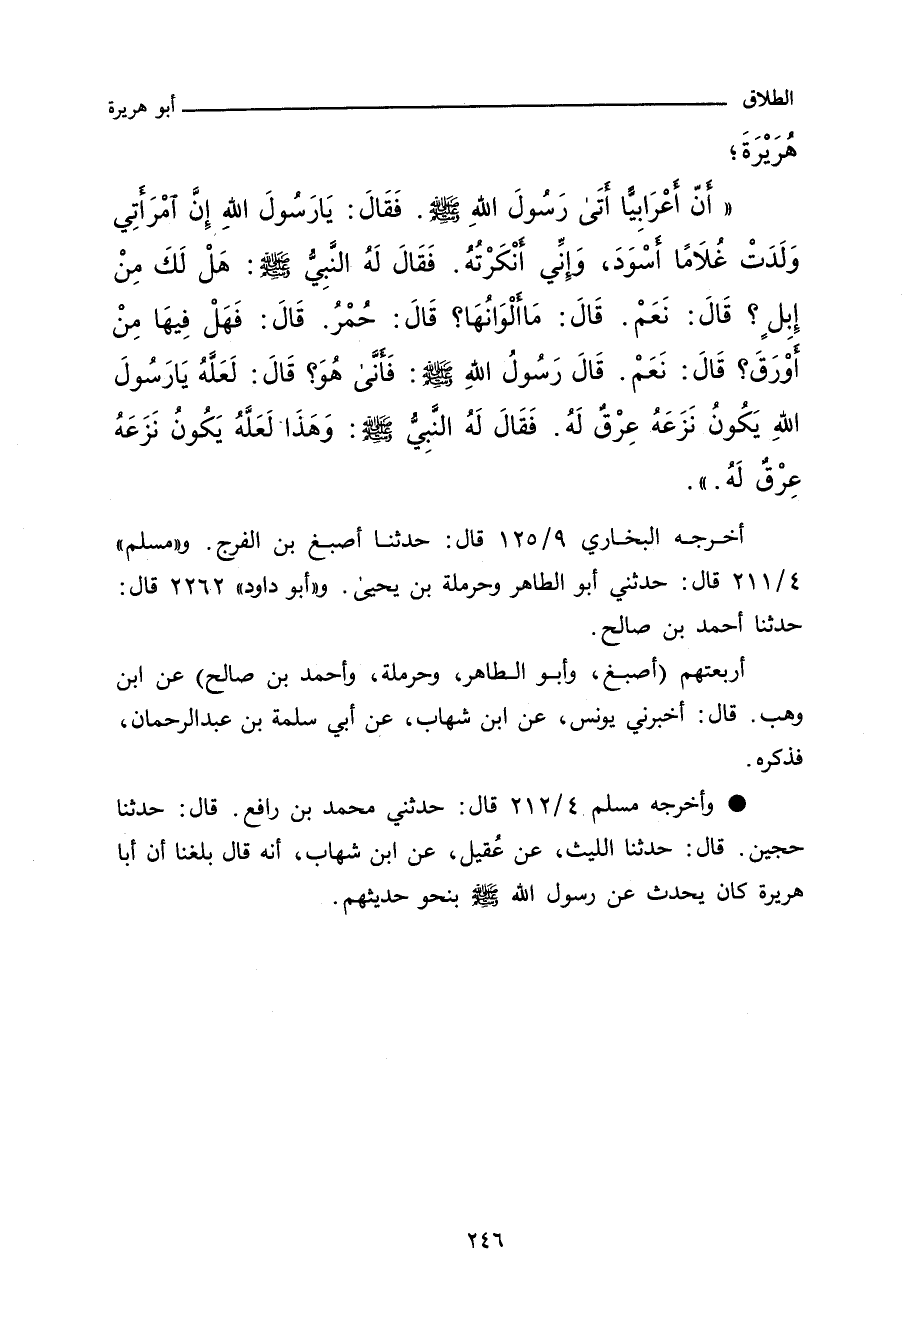 الطلاق ــــــــــــــــــــــــ أبو هريرة
هُرَيْرَةَ؛
« أَنَّ أَعْرَابِيًّا أَتَىٰ رَسُولَ اللهِ ﷺ. فَقَالَ: يَارَسُولَ اللهِ إِنَّ ٱمْرَأَتِي
وَلَدَتْ غُلَامًا أَسْوَدَ، وَإِنِّي أَنْكَرْتُهُ. فَقَالَ لَهُ النَّبِيُّ ﷺ: هَلْ لَكَ مِنْ
إِبِلٍ؟ قَالَ: نَعَمْ. قَالَ: مَاأَلْوَانُهَا؟ قَالَ: حُمْرٌ. قَالَ: فَهَلْ فِيهَا مِنْ
أَوْرَقَ؟ قَالَ: نَعَمْ. قَالَ رَسُولُ اللهِ ﷺ: فَأَنَّىٰ هُوَ؟ قَالَ: لَعَلَّهُ يَارَسُولَ
اللهِ يَكُونُ نَزَعَهُ عِرْقٌ لَهُ. فَقَالَ لَهُ النَّبِيُّ ﷺ: وَهَذَا لَعَلَّهُ يَكُونُ نَزَعَهُ
عِرْقٌ لَهُ.».
أخرجه البخاري ١٢٥/٩ قال: حدثنا أصبغ بن الفرج. و«مسلم»
٢١١/٤ قال: حدثني أبو الطاهر وحرملة بن يحيىٰ. و«أبو داود» ٢٢٦٢ قال:
حدثنا أحمد بن صالح.
أربعتهم (أصبغ، وأبو الطاهر، وحرملة، وأحمد بن صالح) عن ابن
وهب. قال: أخبرني يونس، عن ابن شهاب، عن أبي سلمة بن عبدالرحمان،
فذكره.
● وأخرجه مسلم ٢١٢/٤ قال: حدثني محمد بن رافع. قال: حدثنا
حجين. قال: حدثنا الليث، عن عُقيل، عن ابن شهاب، أنه قال بلغنا أن أبا
هريرة كان يحدث عن رسول الله ﷺ بنحو حديثهم.
٢٤٦